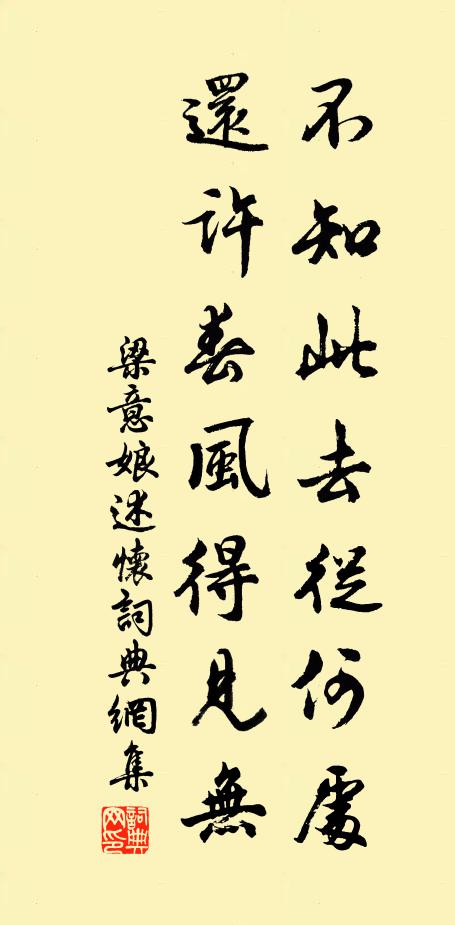 不知此去從何處
還許春風得見無
梁意娘述懷詞典網集
詞典网印